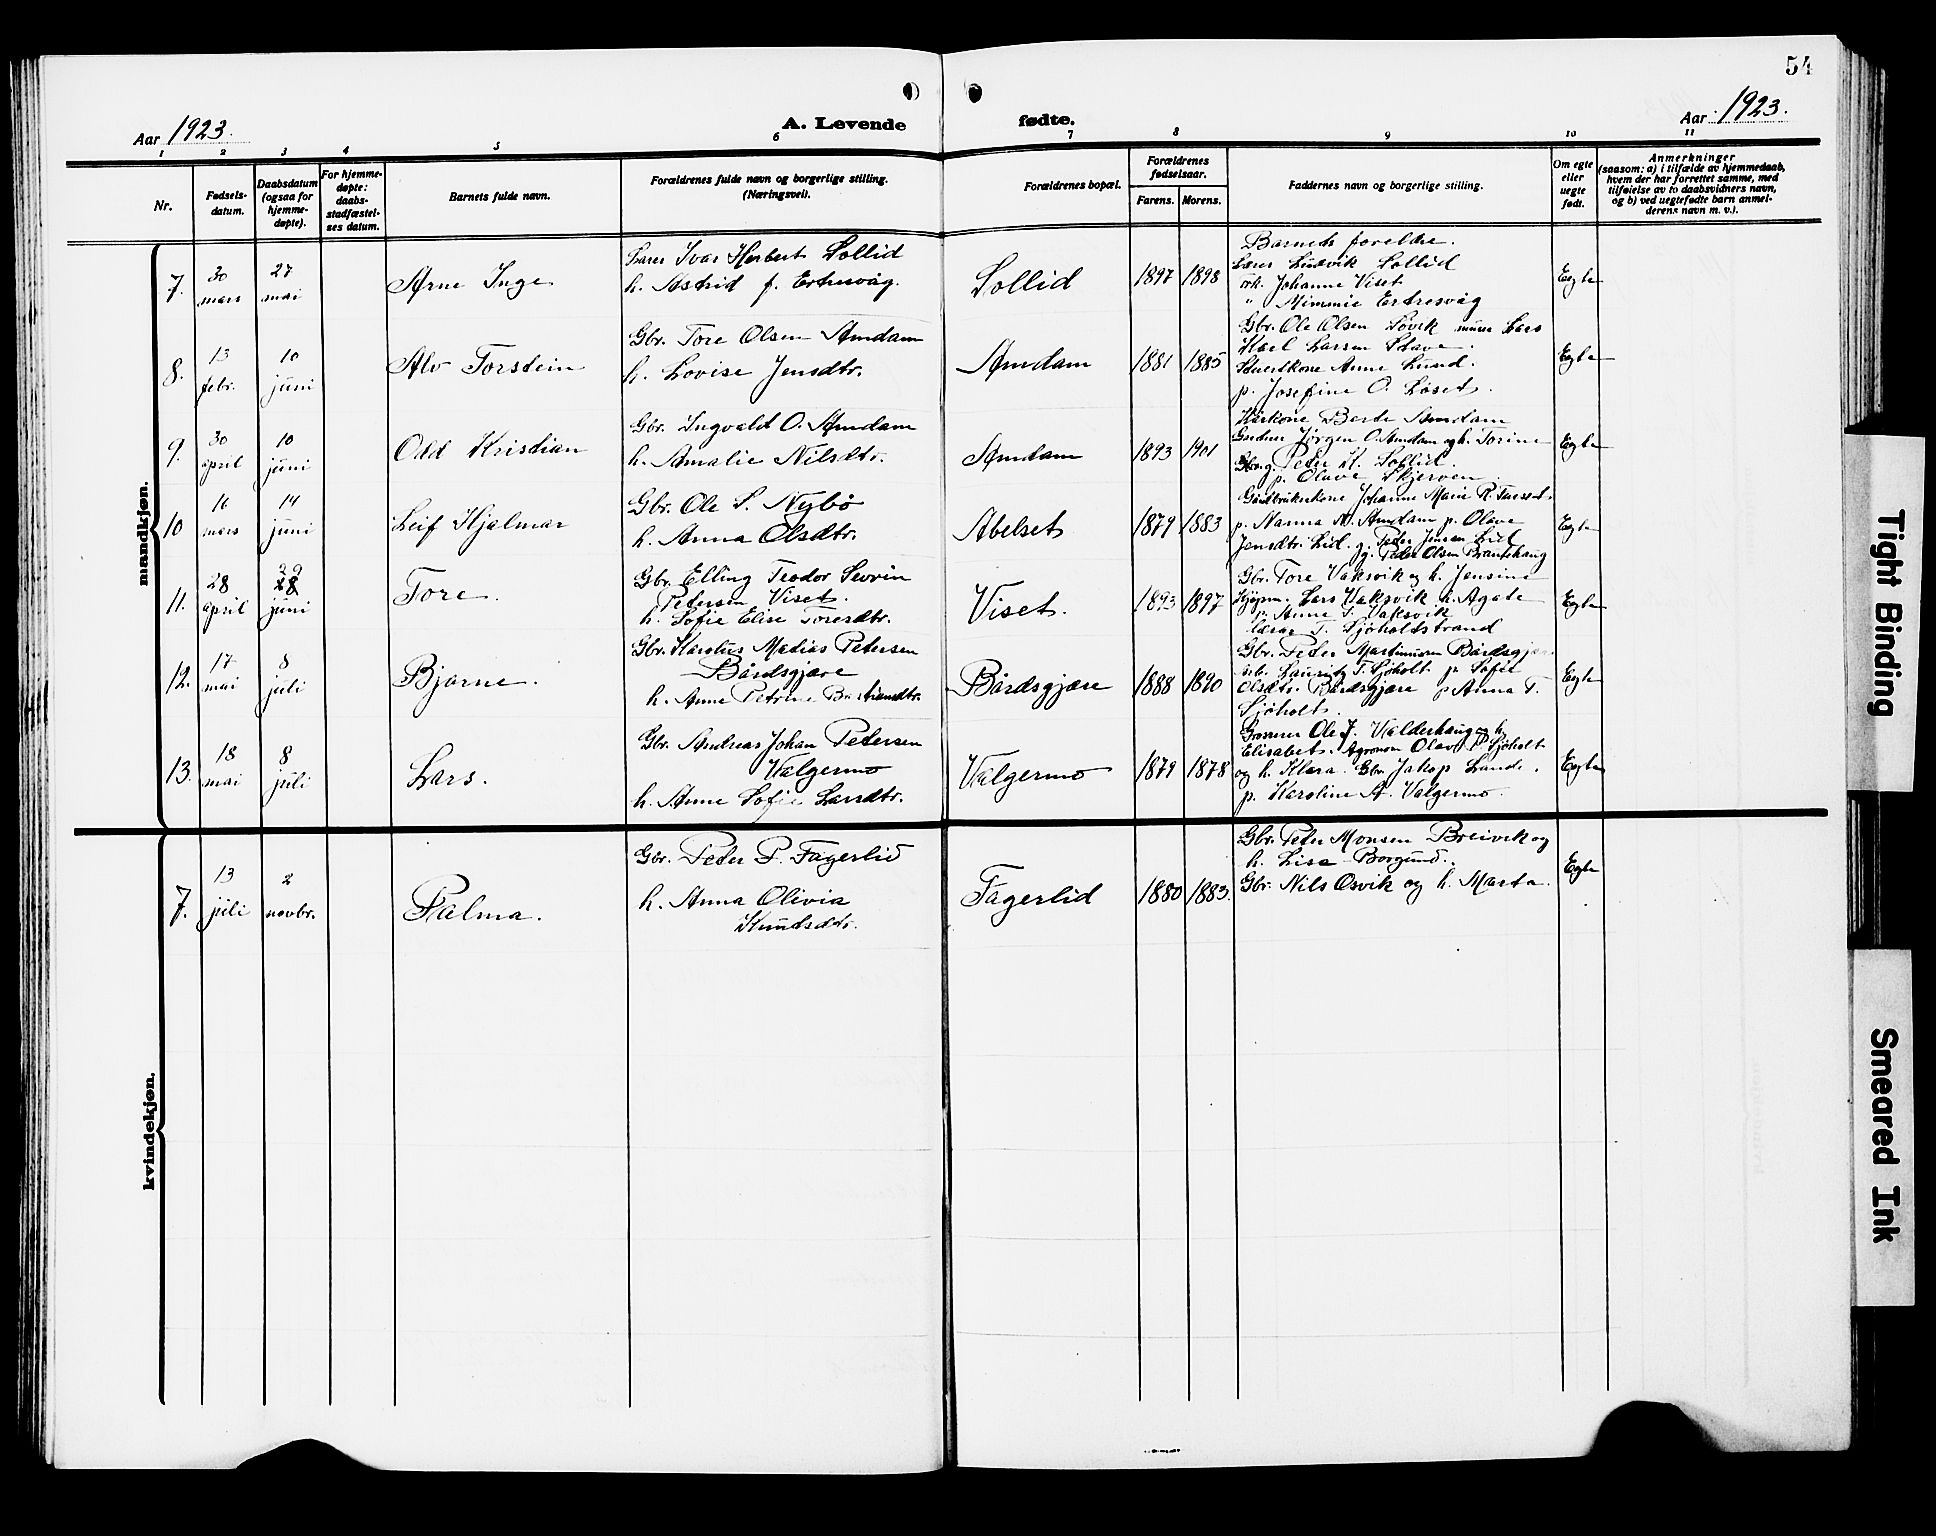 54
Aar 1923.
A. Levende
fødte.
Aar 1923.
1 2 3 4 5 6 7 8 9 10 11
Nr.
Fødsels-
datum.
Daabsdatum
(ogsaa for
hjemme-
døpte).
For hjemme-
døpte:
daabs-
stadfæstel-
ses datum.
Barnets fulde navn.
Forældrenes fulde navn og borgerlige stilling.
(Næringsvei).
Forældrenes bopæl.
Forældrenes
fødselsaar.
Farens. Morens.
Faddernes navn og borgerlige stilling.
Om egte
eller
uegte
født.
Anmerkninger
(saasom: a) i tilfælde av hjemmedaab,
hvem der har forrettet samme, med
tilføielse av to daabsvidners navn,
og b) ved uegtefødte barn anmel-
derens navn m. v.).
mandkjøn.
7. 30 mars 27 mai Arne Inge
Lærer Ivar Herbert Sollid
h. Astrid f. Ertresvåg.
Sollid 1897 1898
Barnets foreldre.
Lærer Ludvik Sollid
Frk. Johanne Viset
" Mimmie Ertresvåg
Egte
8. 13 febr. 10 juni Alv Torstein
Gbr. Tore Olsen Amdam
h. Lovise Jensdtr.
Amdam 1881 1885
Gbr. Ole Olsen Løvik murer Lars
Karl Larsen Stave.
Stuertkone Anne Lund.
p. Josefine O. Løset.
Egte
9. 30 april 10 juni Odd Kristian
Gbr. Ingvald O. Amdam
h. Amalie Nilsdtr.
Amdam 1893 1901
Kårkone Berte Amdam
Gardbr. Jørgen O. Amdam og h. Torine
g. Peder K. Sollid.
p. Olave Skjerven
Egte
10 16 mars 14 juni Leif Hjalmar
Gbr. Ole S. Nybø
h. Anna Olsdtr.
Abelset 1879 1883
Gårdbrukerkone Johanne Marie R.
p. Nanna M. Amdam p. Olave
Jensdtr. Lid. g. Peder Jensen Lid
g. Peder Olsen Brautehaug
Egte
11. 28 april 29 28 juni Tore.
Gbr. Elling Teodor Severin
Petersen Viset.
h. Sofie Elise Toresdtr.
Viset. 1893 1897
Gbr. Tore Vaksvik og h. Jensine
Kjøpm. Lars Vaksvik h. Agate
p. Anne T. Vaksvik
Lærer T. Sjøholdstrand
Egte
12. 17 mai 8 juli Bjarne.
Gbr. Karolus Matias Petersen
Bårdsgjære
h. Anne Petrine
Bårdsgjære 1888 1890
Gbr. Peder Martinusen Bårdsgjær.
Lauritz T. Sjøholt p. Sofie
Olsdtr. Bårdsgjære p Anna T.
Sjøholt.
Egte
13. 18 mai 8 juli Lars.
Gbr. Andreas Johan Petersen
Valgermo
h. Anne Sofie Larsdtr.
Valgermo 1879 1878
Grosserer Ole J. Valderhaug og h.
Elisabet. Agronom Olav P. Sjøholt
og h. Klara. Gbr. Jakop Lande.
p. Karoline A. Valgermo.
Egte
kvindekjøn.
7. 13 juli 2 novbr. Palma.
Gbr. Peder P. Fagerlid
h. Anna Olivia
Knudsdtr.
Fagerlid 1880 1883.
Gbr. Peter Monsen Breivik og
h. Lisa Borgund.
Gbr. Nils Osvik og h. Marta.
Egte
Tight Binding
Smeared Ink